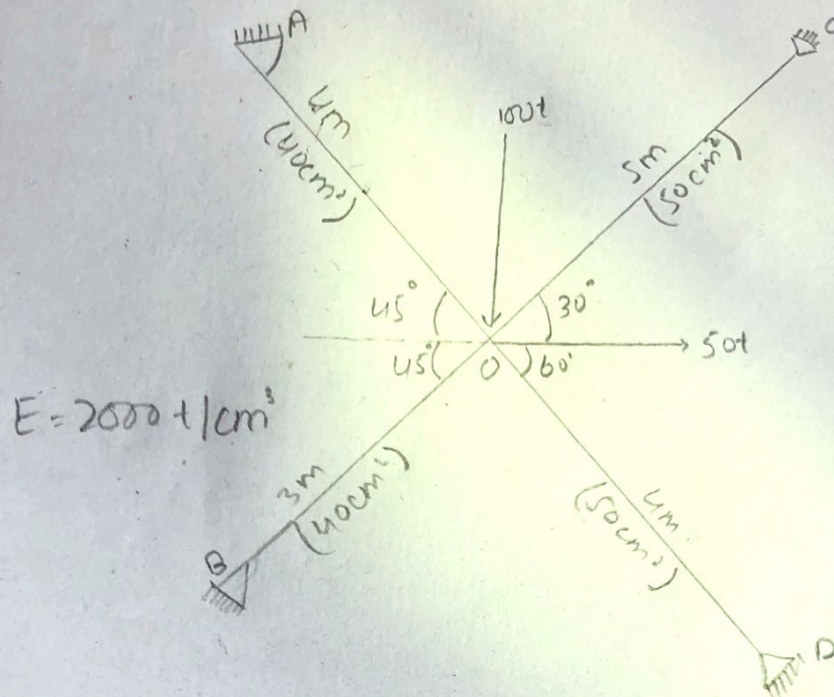 A
C
4m
(40cm²)
100t
5m
(50cm²)
45°
30°
45°
O
60°
50t
E = 2000 t/cm³
3m
(40cm²)
4m
(50cm²)
B
D